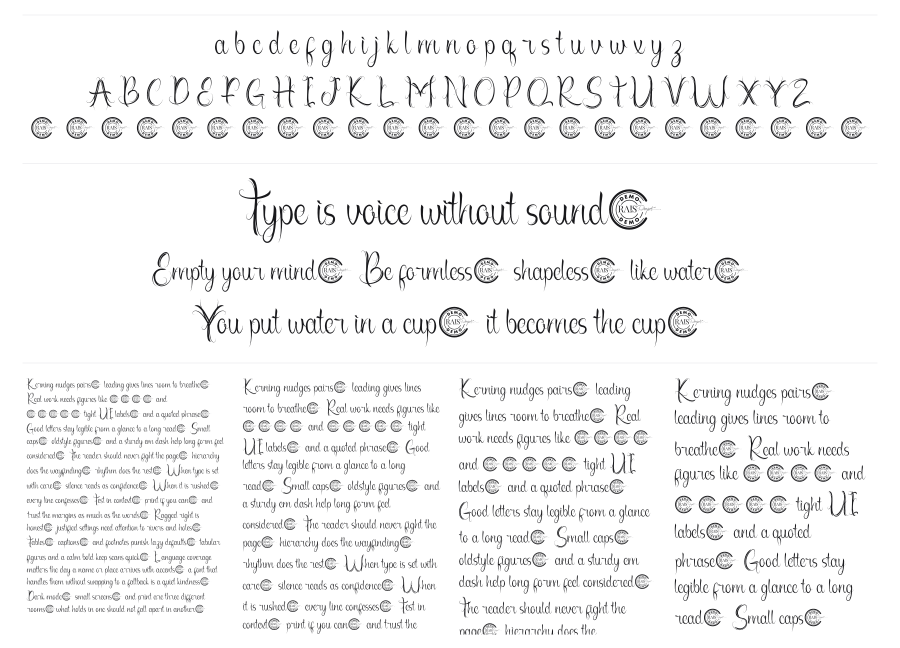 abcdefghijklmnopqrstuvwxyz
ABCDEFGHIJKLMNOPQRSTUVWXYZ
Type is voice without sound
Empty your mind Be formless shapeless like water
You put water in a cup it becomes the cup
Kerning nudges pairs leading gives lines room to breathe
Real work needs figures like and
tight UI labels and a quoted phrase
Good letters stay legible from a glance to a long read Small
caps oldstyle figures and a sturdy em dash help long form feel
considered The reader should never fight the page hierarchy
does the wayfinding rhythm does the rest When type is set
with care silence reads as confidence When it is rushed
every line confesses Test in context print if you can and
trust the margins as much as the words Ragged right is
honest justified settings need attention to rivers and holes
Tables captions and footnotes punish lazy defaults tabular
figures and a calm bold keep scans quick Language coverage
matters the day a name or place arrives with accents a font that
handles them without swapping to a fallback is a quiet kindness
Dark mode small screens and print are three different
rooms what holds in one should not fall apart in another
Kerning nudges pairs leading gives lines
room to breathe Real work needs figures like
and tight
UI labels and a quoted phrase Good
letters stay legible from a glance to a long
read Small caps oldstyle figures and
a sturdy em dash help long form feel
considered The reader should never fight the
page hierarchy does the wayfinding
rhythm does the rest When type is set with
care silence reads as confidence When
it is rushed every line confesses Test in
context print if you can and trust the
Kerning nudges pairs leading
gives lines room to breathe Real
work needs figures like
and tight UI
labels and a quoted phrase
Good letters stay legible from a glance
to a long read Small caps
oldstyle figures and a sturdy em
dash help long form feel considered
The reader should never fight the
page hierarchy does the
Kerning nudges pairs
leading gives lines room to
breathe Real work needs
figures like and
tight UI
labels and a quoted
phrase Good letters stay
legible from a glance to a long
read Small caps